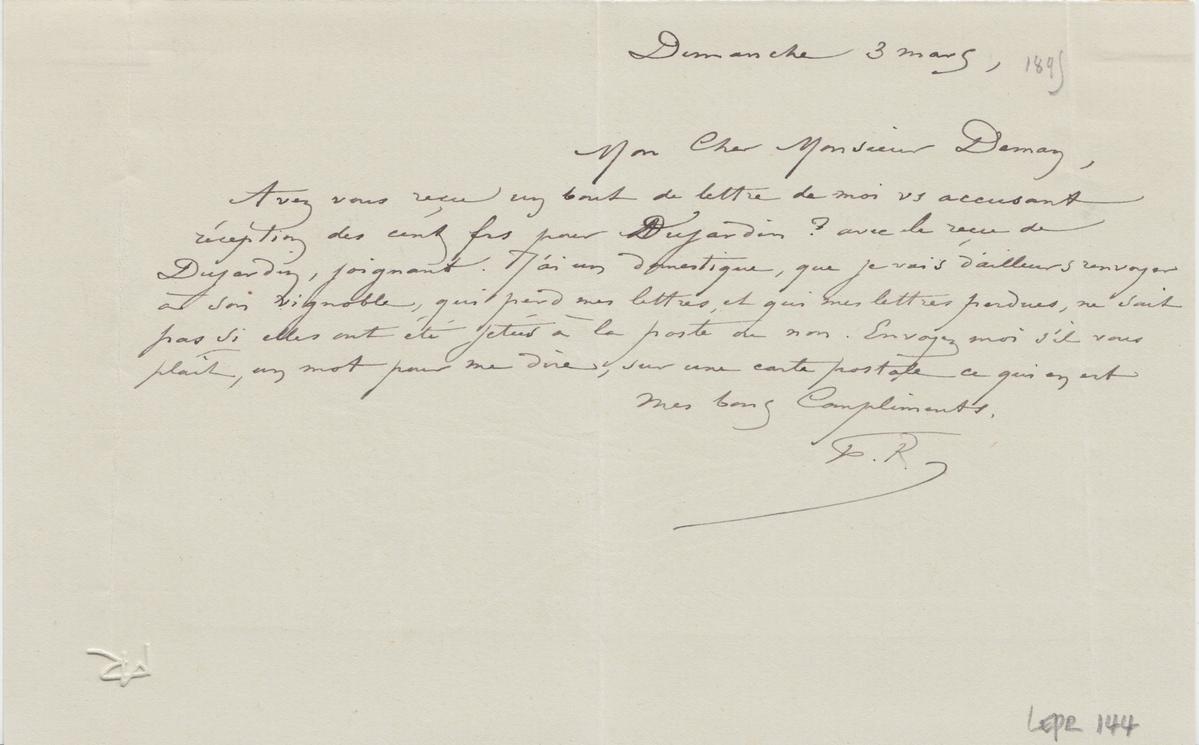 Dimanche 3 mars, 1895
Mon Cher Monsieur Deman,
Avez vous reçu un bout de lettre de moi vs accusant
réception des cent frs pour Dujardin ? avec le reçu de
Dujardin, joignant. J'ai un domestique, que je vais d'ailleurs renvoyer
à son vignoble, qui perd mes lettres, et qui mes lettres perdues, ne sait
pas si elles ont été jetées à la poste ou non. Envoyez moi s'il vous
plaît, un mot pour me dire, sur une carte postale ce qui en est
Mes bons Compliments.
F. R.
LEPR 144